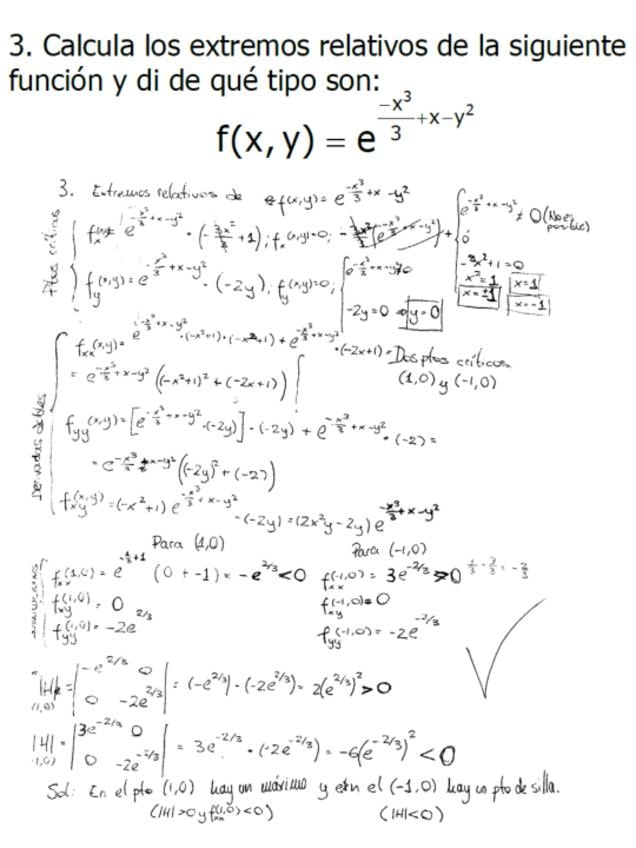 3. Calcula los extremos relativos de la siguiente
función y di de qué tipo son:
f(x, y) = e^(-x³/3 + x - y²)
3. Extremos relativos de f(x,y) = e^(-x³/3 + x - y²)
Ptos críticos
f_x(x,y) = e^(-x³/3 + x - y²) · (-3x²/3 + 1); f_x(x,y)=0;
e^(-x³/3 + x - y²) ≠ 0 (No es posible)
ó
-x²+1=0
x²=1
x=±1
x=1
x=-1
f_y(x,y) = e^(-x³/3 + x - y²) · (-2y); f_y(x,y)=0;
e^(-x³/3 + x - y²) ≠ 0
-2y=0 ⇒ y=0
Derivadas dobles
f_xx(x,y) = e^(-x³/3 + x - y²) · (-x²+1) · (-x²+1) + e^(-x³/3 + x - y²) · (-2x+1) =
= e^(-x³/3 + x - y²) ((-x²+1)² + (-2x+1))
Dos ptos críticos
(1,0) y (-1,0)
f_yy(x,y) = [e^(-x³/3 + x - y²) · (-2y)] · (-2y) + e^(-x³/3 + x - y²) · (-2) =
= e^(-x³/3 + x - y²) ((-2y)² + (-2))
f_xy(x,y) = (-x²+1) e^(-x³/3 + x - y²) · (-2y) = (2x²y - 2y) e^(-x³/3 + x - y²)
Para (1,0)
f_xx(1,0) = e^(-1/3 + 1) (0 + -1) = -e^(2/3) < 0
f_xy(1,0) = 0
f_yy(1,0) = -2e^(2/3)
Para (-1,0)
f_xx(-1,0) = 3e^(-2/3) > 0
1/3 - 3/3 = -2/3
f_xy(-1,0) = 0
f_yy(-1,0) = -2e^(-2/3)
|H| (1,0) = | -e^(2/3) 0 |
| 0 -2e^(2/3) | = (-e^(2/3)) · (-2e^(2/3)) = 2(e^(2/3))² > 0
|H| (-1,0) = | 3e^(-2/3) 0 |
| 0 -2e^(-2/3) | = 3e^(-2/3) · (-2e^(-2/3)) = -6(e^(-2/3))² < 0
Sol: En el pto (1,0) hay un máximo y en el (-1,0) hay un pto de silla.
(|H|>0 y f_xx(1,0)<0) (|H|<0)